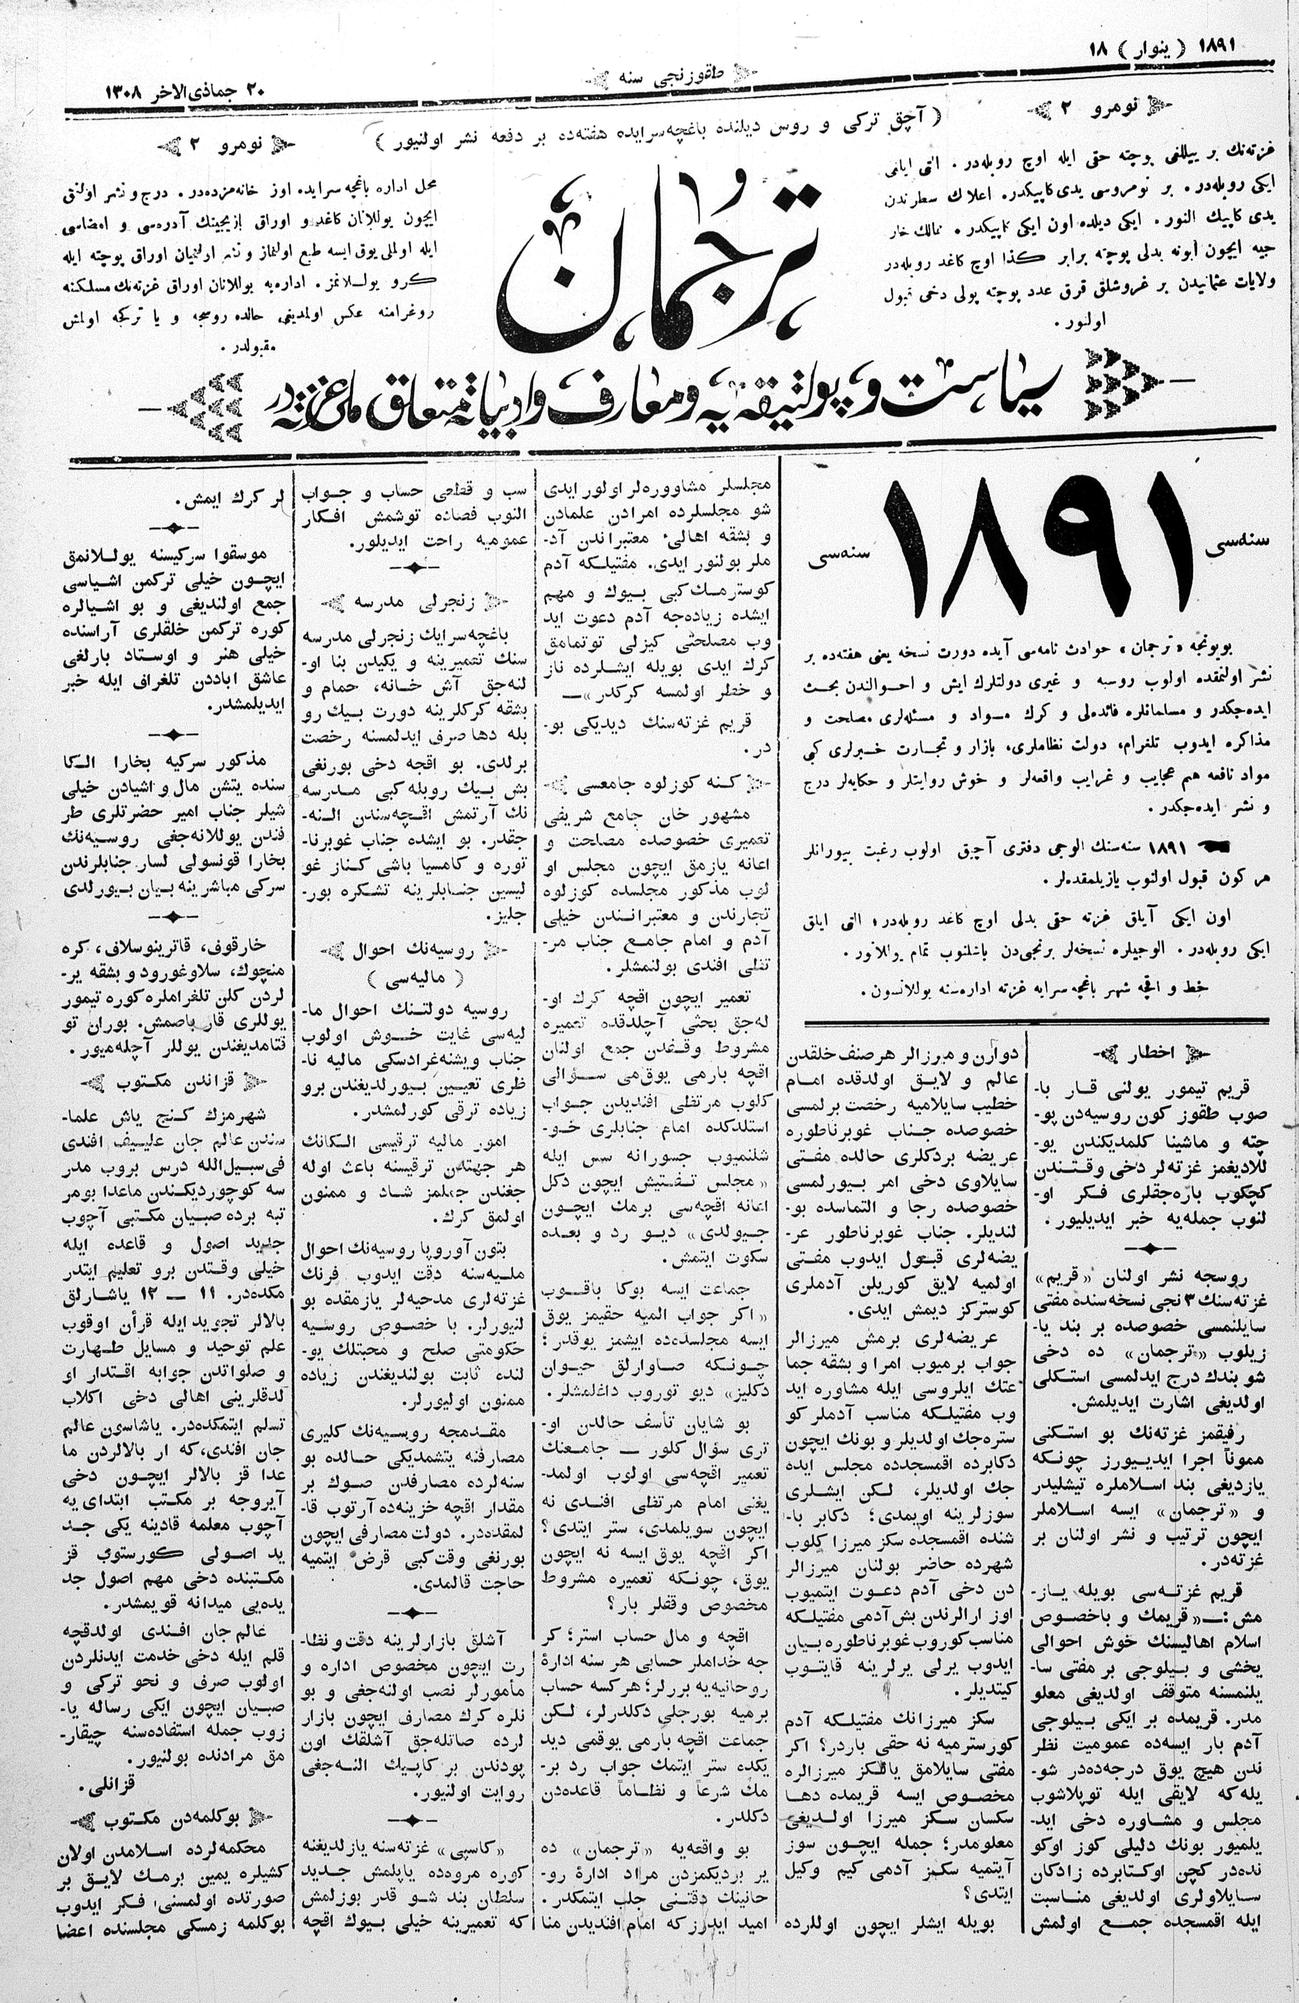 ١٨٩١ ( ینوار ) ١٨
طقوزنجی سنه
٢٠ جماذی‌الاخر ١٣٠٨
نومرو ٢
( آچق ترکی و روس دیلنده باغچه‌سرایده هفته‌ده بر دفعه نشر اولنیور )
نومرو ٢
غزته‌نك بر ییللغی پوچته حقی ایله اوچ روبله‌در . التی ایلغی
ایکی روبله‌در . بر نومروسی یدی کاپیکدر . اعلانك سطرندن
یدی کاپیك النور . ایکی دیلده اون ایکی کاپیکدر . ممالك خار
جیه ایچون آبونه بدلی پوچته برابر کذا اوچ کاغد روبله‌در
ولایات عثمانیدن بر غروشلق قرق عدد پوچته پولی دخی قبول
اولنور .
ترجمان
محل اداره باغچه سرایده اوز خانه‌مزده‌در . درج و نشر اولنق
ایچون یوللانان کاغد و اوراق یازیجینك آدره‌سی و امضاسی
ایله اولملی یوق ایسه طبع اولنماز و نشر اولنمیان اوراق پوچته ایله
کرو یوللانمز . اداره‌یه یوللانان اوراق غزته‌نك مسلکنه
روغرامنه عکس اولمدیغی حالده روسجه و یا ترکجه اولمش
مقبولدر .
سیاست و پولتیقه‌یه و معارف و ادبیاته متعلق ملی غزته‌در
سنه‌سی ١٨٩١ سنه‌سی
بویونجه «ترجمان» حوادث نامه‌سی آیده دورت نسخه یعنی هفته‌ده بر
نشر اولنمقده اولوب روسیه و غیری دولتلرك ایش و احوالندن بحث
ایده‌جکدر و مسلمانلره فائده‌لی و کرك مواد و مسئله‌لری مصلحت و
مذاکره ایدوب تلغرام، دولت نظاملری، بازار و تجارت خبرلری کبی
مواد نافعه هم عجایب و غرایب واقعه‌لر و خوش روایتلر و حکایه‌لر درج
و نشر ایده‌جکدر .
١٨٩١ سنه‌سنك الوجی دفتری آچیق اولوب رغبت بیورانلر
هر کون قبول اولنوب یازیلمقده‌لر .
اون ایکی آیلق غزته حقی بدلی اوچ کاغد روبله‌در؛ التی ایلق
ایکی روبله‌در . الوجیلره نسخه‌لر برنجی‌دن باشلنوب تمام یوللانور .
خط و اقچه شهر باغچه سرایه غزته اداره‌سنه یوللانسون .
اخطار
قریم تیمور یولنی قار با-
صوب طقوز کون روسیه‌دن پو-
چته و ماشینا کلمدیکندن یو-
للادیغمز غزته‌لر دخی وقتندن
کچکوب بازه‌جقلری فکر او-
لنوب جمله‌یه خبر ایدیلیور .
روسجه نشر اولنان «قریم»
غزته‌سنك ٣ نجی نسخه‌سنده مفتی
سایلنمسی خصوصده بر بند یا-
زیلوب «ترجمان» ده دخی
شو بندك درج ایدلمسی استکلی
اولدیغی اشارت ایدیلمش.
رفیقمز غزته‌نك بو استکنی
ممونآ اجرا ایدییورز چونکه
یازدیغی بند اسلاملره تیشلیدر
و «ترجمان» ایسه اسلاملر
ایچون ترتیب و نشر اولنان بر
غزته‌در.
قریم غزته‌سی بویله یاز-
مش:— «قریمك و باخصوص
اسلام اهالیسنك خوش احوالی
یخشی و بیلوجی بر مفتی سا-
یلنمسنه متوقف اولدیغی معلو
مدر. قریمده بر ایکی بیلوجی
آدم بار ایسه‌ده عمومیت نظر
ندن هیچ یوق درجه‌ده‌در شو-
یله‌که لایقی ایله توپلاشوب
مجلس و مشاوره دخی اید-
یلمیور بونك دلیلی کوز اوکو
نده‌در کچن اوکتابرده زادکان
سایلاولری اولدیغی مناسبت
ایله اقمسجده جمع اولمش
دوارن و میرزالر هر صنف خلقدن
عالم و لایق اولدقده امام
خطیب سایلامیه رخصت برلمسی
خصوصده جناب غوبرناطوره
عریضه بردکلری حالده مفتی
سایلاوی دخی امر بیورلمسی
خصوصده رجا و التماسده بو-
لندیلر. جناب غوبرناطور عر-
یضه‌لری قبول ایدوب مفتی
اولمیه لایق کوریلن آدملری
کوسترکز دیمش ایدی.
عریضه‌لری برمش میرزالر
جواب برمیوب امرا و بشقه جما
عتك ایلروسی ایله مشاوره اید
وب مفتیلکه مناسب آدملر کو
ستره‌جك اولدیلر و بونك ایچون
دکابرده اقمسجدده مجلس ایده
جك اولدیلر، لکن ایشلری
سوزلرینه اویمدی؛ دکابر با-
شنده اقمسجده سکز میرزا کلوب
شهرده حاضر بولنان میرزالر
دن دخی آدم دعوت ایتمیوب
اوز ارالرندن بش آدمی مفتیلکه
مناسب کوروب غوبرناطوره بیان
ایدوب یرلی یرلرینه قایتوب
کیتدیلر.
سکز میرزانك مفتیلکه آدم
کورسترمیه نه حقی باردر؟ اکر
مفتی سایلامق یالکز میرزالره
مخصوص ایسه قریمده دها
سکسان سکز میرزا اولدیغی
معلومدر؛ جمله ایچون سوز
آیتمیه سکز آدمی کیم وکیل
ایتدی؟
بویله ایشلر ایچون اوللرده
مجلسلر مشاووره‌لر اولور ایدی
شو مجلسلرده امرادن علمادن
و بشقه اهالی معتبراندن آد-
ملر بولنور ایدی. مفتیلکه آدم
کوسترمك کبی بیوك و مهم
ایشده زیاده‌جه آدم دعوت اید
وب مصلحتی کیزلی توتمامق
کرك ایدی بویله ایشلرده ناز
و خطر اولمسه کرکدر»—
قریم غزته‌سنك دیدیکی بو-
در.
کنه کوزلوه جامعسی
مشهور خان جامع شریفی
تعمیری خصوصده مصلحت و
اعانه یازمق ایچون مجلس او
لوب مذکور مجلسده کوزلوه
تجارندن و معتبرانندن خیلی
آدم و امام جامع جناب مر-
تضی افندی بولنمشلر.
تعمیر ایچون اقچه کرك او-
له‌جق بحثی آچلدقده تعمیره
مشروط وقفدن جمع اولنان
اقچه بارمی یوق‌می سؤالی
کلوب مرتضی افندیدن جواب
استلدکده امام جنابلری خو-
شلنمیوب جسورانه سس ایله
«مجلس تفتیش ایچون دکل
اعانه اقچه‌سی برمك ایچون
جیولدی» دیو رد و بعده
سکوت ایتمش.
جماعت ایسه بوکا باقوب
«اکر جواب المیه حقیمز یوق
ایسه مجلسده‌ده ایشمز یوقدر؛
چونکه صاوارلق حیوان
دکلیز» دیو توروب داغلمشلر.
بو شایان تأسف حالدن او-
تری سؤال کلور — جامعنك
تعمیر اقچه‌سی اولوب اولمد-
یغنی امام مرتضی افندی نه
ایچون سویلمدی، ستر ایتدی؟
اکر اقچه یوق ایسه نه ایچون
یوق، چونکه تعمیره مشروط
مخصوص وقفلر بار؟
اقچه و مال حساب استر؛ کر
جه خداملر حسابی هر سنه ادارهٔ
روحانیه‌یه بررلر؛ هر کسه حساب
برمیه بورجلی دکلدرلر، لکن
جماعت اقچه بارمی یوقمی دید
یکده ستر ایتمك جواب رد بر-
مك شرعاً و نظاماً قاعده‌دن
دکلدر.
بو واقعه‌یه «ترجمان» ده
یر بردیکمزدن مراد ادارهٔ رو-
حانینك دقتنی جلب ایتمکدر.
امید ایدرز که امام افندیدن منا
سب و قطعی حساب و جواب
النوب فصاده توشمش افکار
عمومیه راحت ایدیلور.
زنجرلی مدرسه
باغچه‌سرایك زنجرلی مدرسه
سنك تعمیرینه و یکیدن بنا او-
لنه‌جق آش خانه، حمام و
بشقه کرکلرینه دورت بیك رو
بله دها صرف ایدلمسنه رخصت
برلدی. بو اقچه دخی بورنغی
بش بیك روبله کبی مدرسه
نك آرتمش اقچه‌سندن النه-
جقدر. بو ایشده جناب غوبرنا-
توره و کامسیا باشی کناز غو
لیسین جنابلرینه تشکره بور-
جلیز.
روسیه‌نك احوال
( مالیه‌سی )
روسیه دولتنك احوال ما-
لیه‌سی غایت خوش اولوب
جناب ویشنه‌غرادسکی مالیه نا-
ظری تعیین بیورلدیغندن برو
زیاده ترقی کورلمشدر.
امور مالیه ترقیسی الکانك
هر جهتدن ترقیسنه باعث اوله
جغندن جملمز شاد و ممنون
اولمق کرك.
بتون آوروپا روسیه‌نك احوال
ملیه‌سنه دقت ایدوب فرنك
غزته‌لری مدحیه‌لر یازمقده بو
لنیورلر. با خصوص روسیه
حکومتی صلح و محبتلك یو-
لنده ثابت بولندیغندن زیاده
ممنون اولیورلر.
مقدمجه روسیه‌نك کلیری
مصارفنه یتشمدیکی حالده بو
سنه‌لرده مصارفدن صوك بر
مقدار اقچه خزینه‌ده آرتوب قا-
لمقده‌در. دولت مصارفی ایچون
بورنغی وقت کبی قرض ایتمیه
حاجت قالمدی.
آشلق بازارلرینه دقت و نظا-
رت ایچون مخصوص اداره و
مأمورلر نصب اولنه‌جغی و بو
نلره کرك مصارف ایچون بازار
لرده صاتله‌جق آشلقك اون
پودندن بر کاپیك النه‌جغی
روایت اولنیور.
«کاسپی» غزته‌سنه یازلدیغنه
کوره مروده یاپلمش جدید
سلطان بند شو قدر بوزلمش
که تعمیرینه خیلی بیوك اقچه
لر کرك ایمش.
موسقوا سرکیسنه یوللانمق
ایچون خیلی ترکمن اشیاسی
جمع اولندیغی و بو اشیالره
کوره ترکمن خلقلری آراسنده
خیلی هنر و اوستاد بارلغی
عاشق اباددن تلغراف ایله خبر
ایدیلمشدر.
مذکور سرکیه بخارا الکا
سنده یتشن مال و اشیادن خیلی
شیلر جناب امیر حضرتلری طر
فندن یوللانه‌جغی روسیه‌نك
بخارا قونسولی لسار جنابلرندن
سرکی مباشرینه بیان بیورلدی
خارقوف، قاترینوسلاف، کره
منچوك، سلاوغورود و بشقه یر-
لردن کلن تلغراملره کوره تیمور
یوللری قار باصمش. بوران تو
قتامدیغندن یوللر آچله‌میور.
قزاندن مکتوب
شهرمزك کنج یاش علما-
سندن عالم جان علییف افندی
فی‌سبیل‌الله درس بروب مدر
سه کوچوردیکندن ماعدا بو مر
تبه برده صبیان مکتبی آچوب
جدید اصول و قاعده ایله
خیلی وقتدن برو تعلیم ایتدر
مکده‌در. ١١ — ١٢ یاشارلق
بالالر تجوید ایله قرأن اوقوب
علم توحید و مسایل طهارت
و صلواتدن جوابه اقتدار او
لدقلرینی اهالی دخی اکلاب
تسلم ایتمکده‌در. یاشاسون عالم
جان افندی، که ار بالالردن ما
عدا قز بالالر ایچون دخی
آیروجه بر مکتب ابتدای یه
آچوب معلمه قادینه یکی جد
ید اصولی کورستوب قز
مکتبنده دخی مهم اصول جد
یده‌یی میدانه قویمشدر.
عالم جان افندی اولدقچه
قلم ایله دخی خدمت ایدنلردن
اولوب صرف و نحو ترکی و
صبیان ایچون ایکی رساله یا-
زوب جمله استفاده‌سنه چیقار-
مق مرادنده بولنیور.
قزانلی.
بوکلمه‌دن مکتوب
محکمه‌لرده اسلامدن اولان
کشیلره یمین برمك لایق بر
صورتده اولمسنی فکر ایدوب
بوکلمه زمسکی مجلسنده اعضا